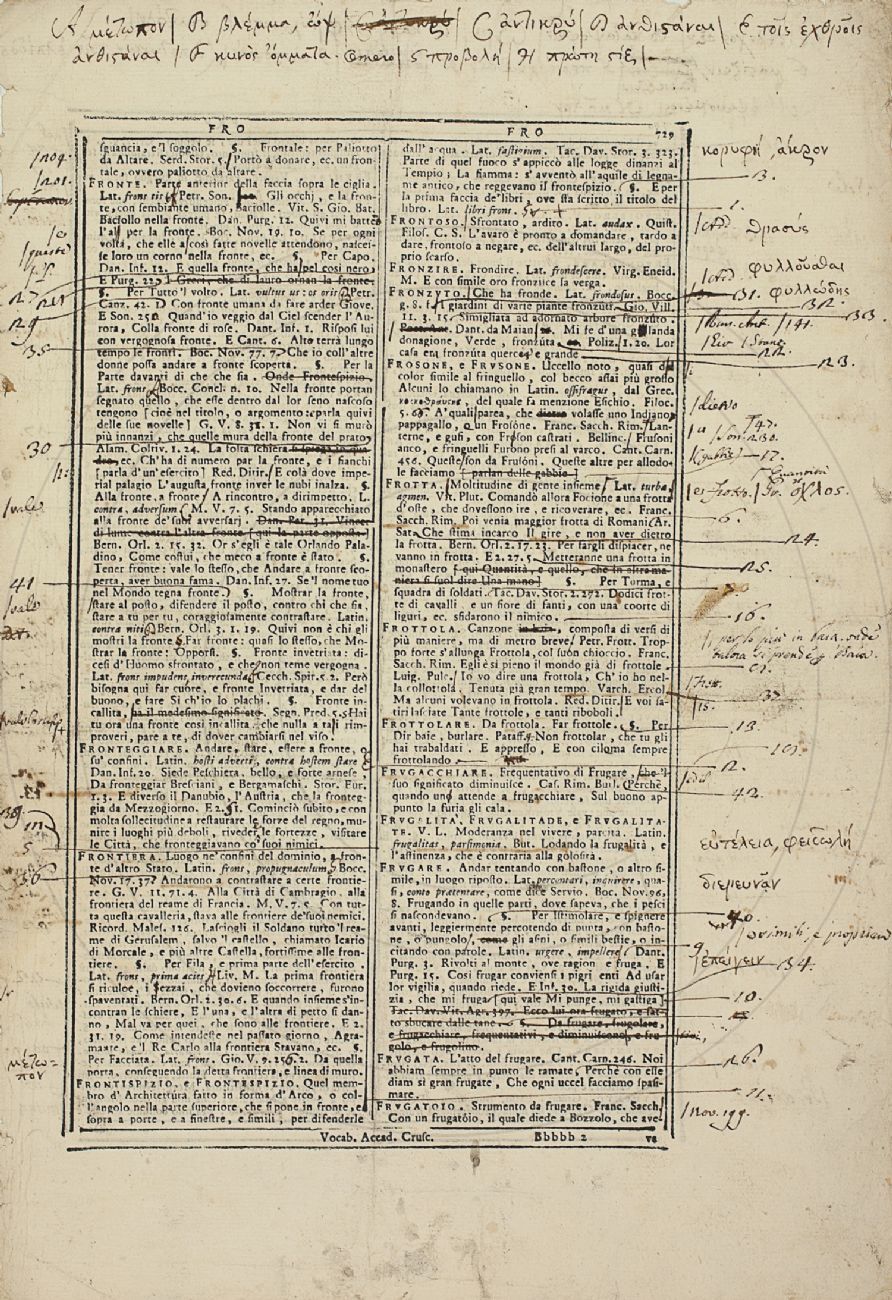 A μέτωπον | B βλέμμα, ὤψ | C ἀντικρύ | D ἀνθιςάναι | E τοῖς ἐχθροῖς
ἀνθιςάναι | F κυνὸς ὄμματα. Omero | G προβολή | H πρώτη
FRO FRO 729
sguancia, e'l soggolo. §. Frontale: per Paliotto
da Altare. Serd. Stor. 5. Portò a donare, ec. un fron-
tale, ovvero paliotto da altare.
FRONTE. Parte anterior della faccia sopra le ciglia.
Lat. frons tis Petr. Son. Gli occhj, e la fron-
te, con sembiante umano, Baciolle. Vit. S. Gio. Bat.
Baciollo nella fronte. Dan. Purg. 12. Quivi mi battèo
l'ali per la fronte. Boc. Nov. 19. 10. Se per ogni
volta, che elle a così fatte novelle attendono, nasces-
se loro un corno nella fronte, ec. §. Per Capo.
Dan. Inf. 12. E quella fronte, che ha'l pel così nero,
E Purg. 22. I Greci, che di lauro ornan la fronte.
§. Per Tutto 'l volto. Lat. vultus us: os oris Petr.
Canz. 42. D Con fronte umana da fare arder Giove.
E Son. 250. Quand'io veggio dal Ciel scender l'Au-
rora, Colla fronte di rose. Dant. Inf. 1. Risposi lui
con vergognosa fronte. E Cant. 6. Alto terrà lungo
tempo le fronti. Boc. Nov. 77. 7. Che io coll'altre
donne possa andare a fronte scoperta. §. Per la
Parte davanti di che che sia. Onde Frontespizio.
Lat. frons Bocc. Concl. n. 10. Nella fronte portan
segnato quello, che esse dentro dal lor seno nascoso
tengono [cioè nel titolo, o argomento: parla quivi
delle sue novelle] G. V. 8. 31. 1. Non vi si murò
più innanzi, che quelle mura della fronte del prato
Alam. Coltiv. 1. 24. La folta schiera si spiega in qua
dre, ec. Ch'ha di numero par la fronte, e i fianchi
[parla d'un'esercito] Red. Ditir. E colà dove impe-
rial palagio L'augusta fronte inver le nubi inalza. §.
Alla fronte, a fronte A rincontro, a dirimpetto. L.
contra, adversum M. V. 7. 5. Stando apparecchiato
alla fronte de' suoi avversarj. Dan. Par. 31. Vincer
di lume contra l'altra fronte [qui la parte opposta]
Bern. Orl. 2. 15. 32. Or s'egli è tale Orlando Pala-
dino, Come costui, che meco a fronte è stato. §.
Tener fronte: vale lo stesso, che Andare a fronte sco-
perta, aver buona fama. Dan. Inf. 27. Se 'l nome tuo
nel Mondo tegna fronte. §. Mostrar la fronte,
stare al posto, difendere il posto, contro chi che sia,
stare a tu per tu, coraggiosamente contrastare. Latin.
contra niti Bern. Orl. 3. 1. 19. Quivi non è chi gli
mostri la fronte §. Far fronte: quasi lo stesso, che Mo-
strar la fronte: Opporsi. §. Fronte invetriata: di-
cesi d'Huomo sfrontato, e che non teme vergogna.
Lat. frons impudens, inverecunda Cecch. Spir. 5. 2. Però
bisogna qui far cuore, e fronte Invetriata, e dar del
buono, e fare Sì ch'io lo plachi. §. Fronte in-
callita, ha il medesimo significato. Segn. Pred. 5. 5. Hai
tu ora una fronte così incallita, che nulla a tali rim-
proveri, pare a te, di dover cambiarsi nel viso.
FRONTEGGIARE. Andare, stare, essere a fronte, o
su' confini. Latin. hosti adverti, contra hostem stare
Dan. Inf. 20. Siede Peschiera, bello, e forte arnese
Da fronteggiar Bresciani, e Bergamaschi. Stor. Eur.
1. 3. E diverso il Danubio, l'Austria, che la fronteg-
gia da Mezzogiorno. E 2. 51. Cominciò subito, e con
molta sollecitudine a restaurare le forze del regno, mu-
nire i luoghi più deboli, riveder le fortezze, visitare
le Città, che fronteggiavano co' suoi nimici.
FRONTIERA. Luogo ne' confini del dominio, a fron-
te d'altro Stato. Latin. frons, propugnaculum Bocc.
Nov. 17. 37. Andarono a contrastare a certe frontie-
re. G. V. 11. 71. 4. Alla Città di Cambragio, alla
frontiera del reame di Francia. M. V. 7. 5. Con tut-
ta questa cavalleria, stava alle frontiere de' suoi nemici.
Ricord. Males. 126. Lasciogli il Soldano tutto 'l rea-
me di Gerusalem, salvo 'l castello, chiamato Icario
di Morcale, e più altre Castella, fortissime alle fron-
tiere. §. Per Fila, e prima parte dell'esercito.
Lat. frons, prima acies Liv. M. La prima frontiera
si riculoe, i sezzai, che dovieno soccorrere, furono
spaventati. Bern. Orl. 2. 30. 6. E quando insieme s'in-
contran le schiere, E l'una, e l'altra di petto si dan-
no, Mal va per quei, che sono alle frontiere. E 2.
31. 19. Come intendesse nel passato giorno, Agra-
mante, e 'l Re Carlo alla frontiera Stavano, ec. §.
Per Facciata. Lat. frons. Gio. V. 9. 256. 2. Da quella
porta, conseguendo la detta frontiera, e linea di muro.
FRONTISPIZIO, e FRONTESPIZIO. Quel mem-
bro d'Architettura fatto in forma d'Arco, o col-
l'angolo nella parte superiore, che si pone in fronte, e
sopra a porte, e a finestre, e simili, per difenderle
dall'acqua. Lat. fastigium. Tac. Dav. Stor. 3. 323.
Parte di quel fuoco s'appiccò alle logge dinanzi al
Tempio; La fiamma: s'avventò all'aquile di legna-
me antico, che reggevano il frontespizio. §. E per
la prima faccia de' libri, ove sta scritto il titolo del
libro. Lat. libri frons.
FRONTOSO. Sfrontato, ardito. Lat. audax. Quist.
Filos. C. S. L'avaro è pronto a domandare, tardo a
dare, frontoso a negare, ec. dell'altrui largo, del pro-
prio scarso.
FRONZIRE. Frondire. Lat. frondescere. Virg. Eneid.
M. E con simile oro fronzisce la verga.
FRONZUTO. Che ha fronde. Lat. frondosus. Bocc.
g. 8. f. 1. giardini di varie piante fronzuti. Gio. Vill.
11. 3. 15. Simigliata ad adornato arbore fronzuto.
Dant. da Maian. Mi fe d'una ghirlanda
donagione, Verde, fronzuta. Poliz. 1. 20. Lor
casa era fronzuta quercia e grande
FROSONE, e FRUSONE. Uccello noto, quasi di
color simile al fringuello, col becco assai più grosso
Alcuni lo chiamano in Latin. ossifragus, dal Grec.
del quale fa menzione Esichio. Filoc.
5. 66. A' quali parea, che dietro volasse uno Indiano
pappagallo, o un Frosone. Franc. Sacch. Rim. Lan-
terne, e gufi, con Froson castrati. Bellinc. Frusoni
anco, e fringuelli Furono presi al varco. Cant. Carn.
456. Queste son da Frusoni, Queste altre per allodo-
le facciamo [parlan delle gabbie]
FROTTA. Moltitudine di gente insieme Lat. turba,
agmen. Vit. Plut. Comandò allora Focione a una frotta
d'oste, che dovessono ire, e ricoverare, ec. Franc.
Sacch. Rim. Poi venia maggior frotta di Romani Ar.
Sat. Che stima incarco Il gire, e non aver dietro
la frotta. Bern. Orl. 2. 17. 23. Per fargli dispiacer, ne
vanno in frotta. E 2. 27. 5. Metteranne una frotta in
monastero [qui Quantità, e quello, che in altra ma-
niera si suol dire Una mano] §. Per Torma, e
squadra di soldati. Tac. Dav. Stor. 2. 272. Dodici frot-
te di cavalli, e un fiore di fanti, con una coorte di
liguri, ec. sfidarono il nimico.
FROTTOLA. Canzone in baia, composta di versi di
più maniere, ma di metro breve Petr. Frott. Trop-
po forte s'allunga Frottola, col suon chioccio. Franc.
Sacch. Rim. Egli è sì pieno il mondo già di frottole
Luig. Pulc. Io vo dire una frottola, Ch'io ho nel-
la collottola, Tenuta già gran tempo. Varch. Ercol.
Ma alcuni volevano in frottola. Red. Ditir. E voi sa-
tiri lasciate Tante frottole, e tanti riboboli.
FROTTOLARE. Da frottola. Far frottole. §. Per
Dir baie, burlare. Pataff. 9. Non frottolar, che tu gli
hai trabaldati. E appresso, E con ciloma sempre
frottolando.
FRUGACCHIARE. Frequentativo di Frugare, che 'l
suo significato diminuisce. Cas. Rim. Burl. Perchè,
quando uno attende a frugacchiare, Sul buono ap-
punto la furia gli cala.
FRUGALITÀ, FRUGALITADE, e FRUGALITA-
TE. V. L. Moderanza nel vivere, parcità. Latin.
frugalitas, parsimonia. But. Lodando la frugalità, e
l'astinenza, che è contraria alla golosità.
FRUGARE. Andar tentando con bastone, o altro si-
mile, in luogo riposto. Lat. percontari, inquirere, qua-
si, conto pratentare, come dice Servio. Boc. Nov. 96.
8. Frugando in quelle parti, dove sapeva, che i pesci
si nascondevano. §. Per Istimolare, e spignere
avanti, leggiermente percotendo di punta, con basto-
ne, o pungolo, come gli asini, o simili bestie, o in-
citando con parole. Latin. urgere, impellere Dant.
Purg. 3. Rivolti al monte, ove ragion e fruga. E
Purg. 15. Così frugar conviensi i pigri enti Ad usar
lor vigilia, quando riede. E Inf. 30. La rigida giusti-
zia, che mi fruga [qui vale Mi punge, mi gastiga]
Tac. Dav. Vit. Agr. 397. Ecco lui ora frugato, e fat-
to sbucare dalle tane. §. Da frugare, frugolare,
e frugacchiare, frequentativi, e diminuiscono, e fru-
golo, e frugolino.
FRUGATA. L'atto del frugare. Cant. Carn. 246. Noi
abbiam sempre in punto le ramate, Perchè con esse
diam sì gran frugate, Che ogni uccel facciamo spasi-
mare.
FRUGATOIO. Strumento da frugare. Franc. Sacch.
Con un frugatoio, il quale diede a Bozzolo, che ave-
Vocab. Accad. Crusc. Bbbbb 2 va
κορυφή, ἄκρον
3.
1.
θρασύς
φυλλοῦσθαι
31. φυλλώδης
32.
33.
23.
17.
ὄχλος.
6.
24.
25.
16.
13.
10.
2.
42.
εὐτέλεια, φειδωλή
διερευνᾷν
40.
9
ἐπείγειν 34.
10.
26.
11.
Nov. 199.
27
29
35
30
vale
41
vale
39
5
36
μέτω-
πον